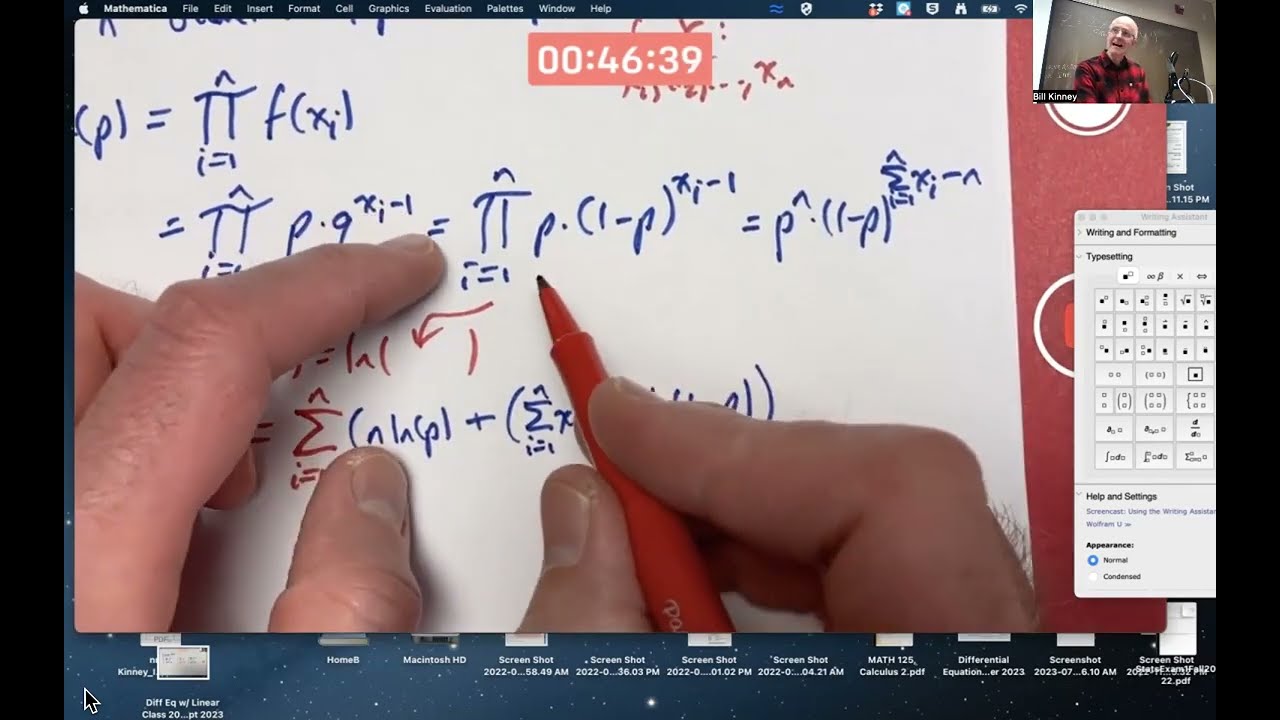 Mathematica File Edit Insert Format Cell Graphics Evaluation Palettes Window Help
00:46:39
Bill Kinney
(p) = ∏ i=1 n f(xᵢ)
= ∏ i=1 n p·q^(xᵢ-1) = ∏ i=1 n p·(1-p)^(xᵢ-1) = pⁿ·(1-p)^(∑ i=1 n xᵢ-n)
= ln( )
= ∑ i= n (n ln(p) + (∑ i=1 n x
Shot
...11.15 PM
Writing Assistant
Writing and Formatting
Typesetting
Help and Settings
Screencast: Using the Writing Assistan
Wolfram U »
Appearance:
Normal
Condensed
Kinney_I
HomeB
Macintosh HD
Screen Shot
2022-0...58.49 AM
Screen Shot
2022-0...36.03 PM
Screen Shot
2022-0....01.02 PM
Screen Shot
2022-0:...04.21 AM
MATH 125
Calculus 2.pdf
Differential
Equation...er 2023
Screenshot
2023-07...6.10 AM
Screen Shot
StatsExam1Fall20
22.pdf
Diff Eq w/ Linear
Class 20...pt 2023